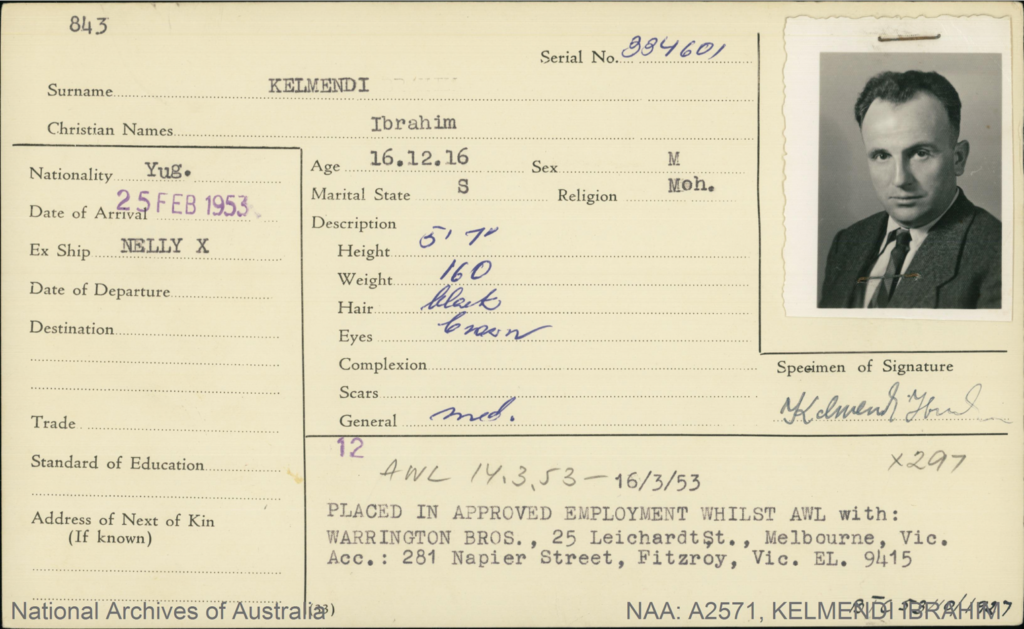 843
Serial No. 334601
Surname KELMENDI
Christian Names Ibrahim
Nationality Yug.
Date of Arrival 25 FEB 1953
Ex Ship NELLY X
Date of Departure
Destination
Trade
Standard of Education
Address of Next of Kin
(If known)
Age 16.12.16 Sex M
Marital State S Religion Moh.
Description
Height 5' 7"
Weight 160
Hair black
Eyes brown
Complexion
Scars
General med.
Specimen of Signature
Kelmendi
12
AWL 14.3.53 — 16/3/53
X297
PLACED IN APPROVED EMPLOYMENT WHILST AWL with:
WARRINGTON BROS., 25 LeichardtSt., Melbourne, Vic.
Acc.: 281 Napier Street, Fitzroy, Vic. EL. 9415
National Archives of Australia
NAA: A2571, KELMENDI IBRAHIM